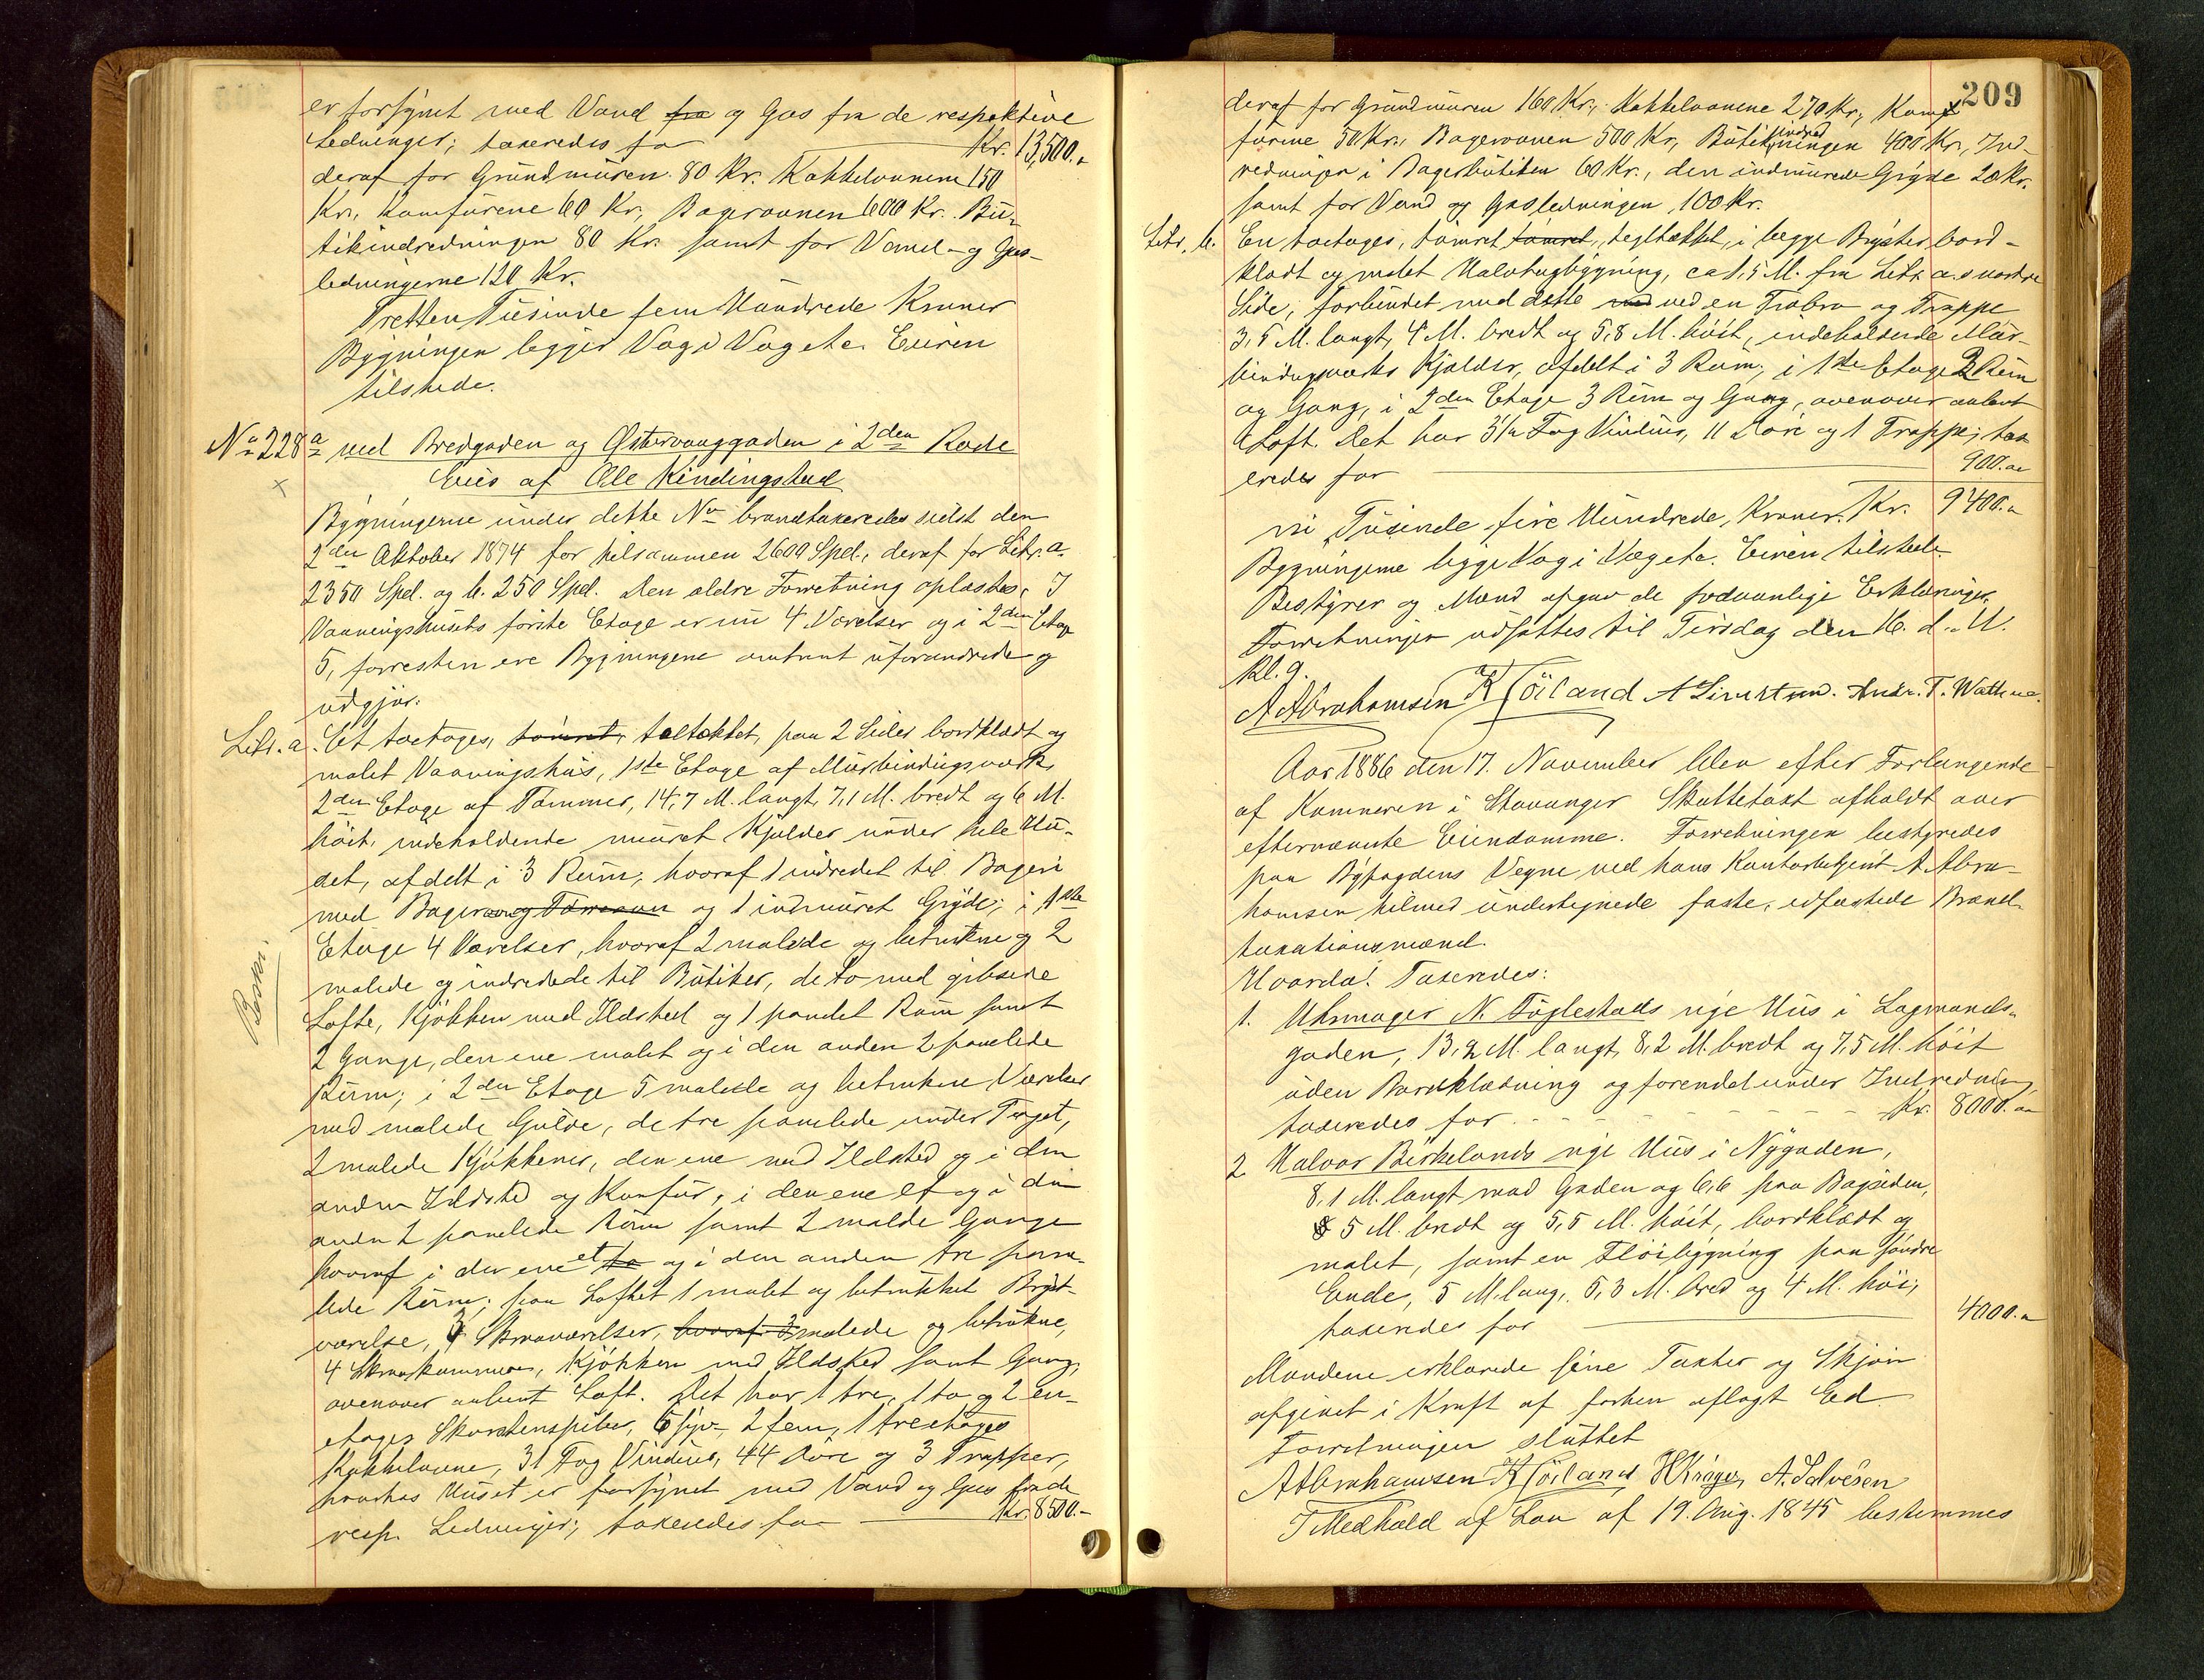 er forsynet med Vand fra og Gas fra de respektive
Ledninger; taxeredes for Kr. 13,500.
deraf for Grundmuren 80 Kr. Kakkelovnene 150
Kr., Komfurene 60 Kr., Bagerovnen 600 Kr. Bu-
tikindredningen 80 Kr. samt for Vand- og Gas-
ledningerne 120 Kr.
Tretten Tusinde fem Hundrede Kroner
Bygningen ligger Væg i Væg etc. Eieren
tilstede.
No 228a ved Bredgaden og Østervaaggaden i 2den Rode
Eies af Ole Kindingstad
Bygningerne under dette No brandtaxeredes sidst den
2den Oktober 1874 for tilsammen 2600 Spd., deraf for Litr. a.
2350 Spd. og b. 250 Spd. Den ældre Forretning oplæstes. I
Vaaningshusets første Etage er nu 4 Værelser og i 2den Etage
5, forresten ere Bygningerne omtrent uforandrede og
udgjør:
Litr. a. Et toetages, tømret, teltækket, paa 2 Sider bordklædt og
malet Vaaningshus, 1ste Etage af Murbindingsværk,
2den Etage af Tømmer, 14,7 M. langt, 7,1 M. bredt og 6 M.
høit, indeholdende muret Kjælder under hele Hu-
set, afdelt i 3 Rum, hvoraf 1 indredet til Bageri
med Bagerovn og Tørreovn og 1 indmuret Gryde; i 1ste
Etage 4 Værelser, hvoraf 2 malede og betrukne og 2
malede og indredede til Butiker, de to med gibsede
Lofte, Kjøkken med Ildsted og 1 panelet Rum samt
2 Gange, den ene malet og i den anden 2 panelede
Rum; i 2den Etage 5 malede og betrukne Værelser
med malede Gulve, de tre panelede under Taget,
2 malede Kjøkkener, den ene med Ildsted og i den
anden Ildsted og Komfur, i den ene et og i den
anden 2 panelede Rum samt 2 malede Gange
hvoraf i den ene et to og i den anden tre pane-
lede Rum; paa Loftet 1 malet og betrukket Bryst-
værelse, 3 Skraaværelser, hvoraf 3 malede og betrukne,
4 Skraakammere, Kjøkken med Ildsted samt Gang,
ovenover aabent Loft. Det har 1 tre, 1 to og 2 en-
etages Skorstenspiber, 6 syv-, 2 fem-, 1 treetages
Kakkelovne, 31 Fag Vinduer, 44 Døre og 3 Trapper,
hvorhos Huset er forsynet med Vand og Gas fra de
resp. Ledninger; taxeredes for Kr. 8500.-
209
deraf for Grundmuren 160 Kr., Kakkelovnene 270 Kr., Kom-
furene 50 Kr., Bagerovnen 500 Kr., Butikindredningen 400 Kr., Ind-
redningen i Bagerbutiken 60 Kr., den indmurede Gryde 20 Kr.
samt for Vand og Gasledningen 100 Kr.
Litr. b. En toetages, tømret tømret, teglhækket, i begge Bryster bord-
klædt og malet Halvtagbygning, ca 1,5 M. fra Litr. a.s nordre
Side, forbundet med dette med ved en Træbro og Trappe
3,5 M. langt, 4 M. bredt og 5,8 M. høit, indeholdende Mur-
bindingsværks Kjælder, afdelt i 3 Rum, i 1ste Etage 2 Rum
og Gang, i 2den Etage 3 Rum og Gang, ovenover aabent
Loft. Det har 3 1/2 Fag Vinduer, 11 Døre og 1 Trappe; tax-
eredes for 900.
ni Tusinde fire Hundrede Kroner. Kr. 9400.
Bygningerne ligge Væg i Væg etc. Eieren tilstede
Bestyrer og Mænd afgav de sedvanlige Erklæringer.
Forretningen udsattes til Tirsdag den 16. d. M.
Kl. 9.
A Abrahamsen K Höiland A Sivertsen. Andr. T. Wathne.
Aar 1886 den 17. November blev efter Forlangende
af Kæmneren i Stavanger Skattetaxt afholdt over
efternævnte Eiendomme. Forretningen bestyredes
paa Byfogdens Vegne ved hans Kontorbetjent A Abra-
hamsen tilmed undertegnede faste, edfæstede Brand-
taxationsmænd.
Hvorda! Taxeredes:
1. Uhrmager N. Fuglestads nye Hus i Lagmands-
gaden, 13,2 M. langt, 8,2 M. bredt og 7,5 M. høit
uden Bordklædning og forendel under Indredning,
taxeredes for Kr. 8000.
2 Halvor Birkelands nye Hus i Nygaden,
8,1 M. langt mod Gaden og 6,6 paa Bagsiden,
5 M. bredt og 5,5 M. høit, bordklædt og
malet, samt en Fløibygning paa søndre
Ende, 5 M. lang, 5,3 M. bred og 4 M. høi;
taxeredes for 4000.
Mændene erklærede sine Taxter og Skjøn
afgivet i Kraft af forhen aflagt Ed.
Forretningen sluttet
A Abrahamsen K Höiland H Krüger, A. Salvesen
I Medhold af Lov af 19. Aug. 1845 bestemmes